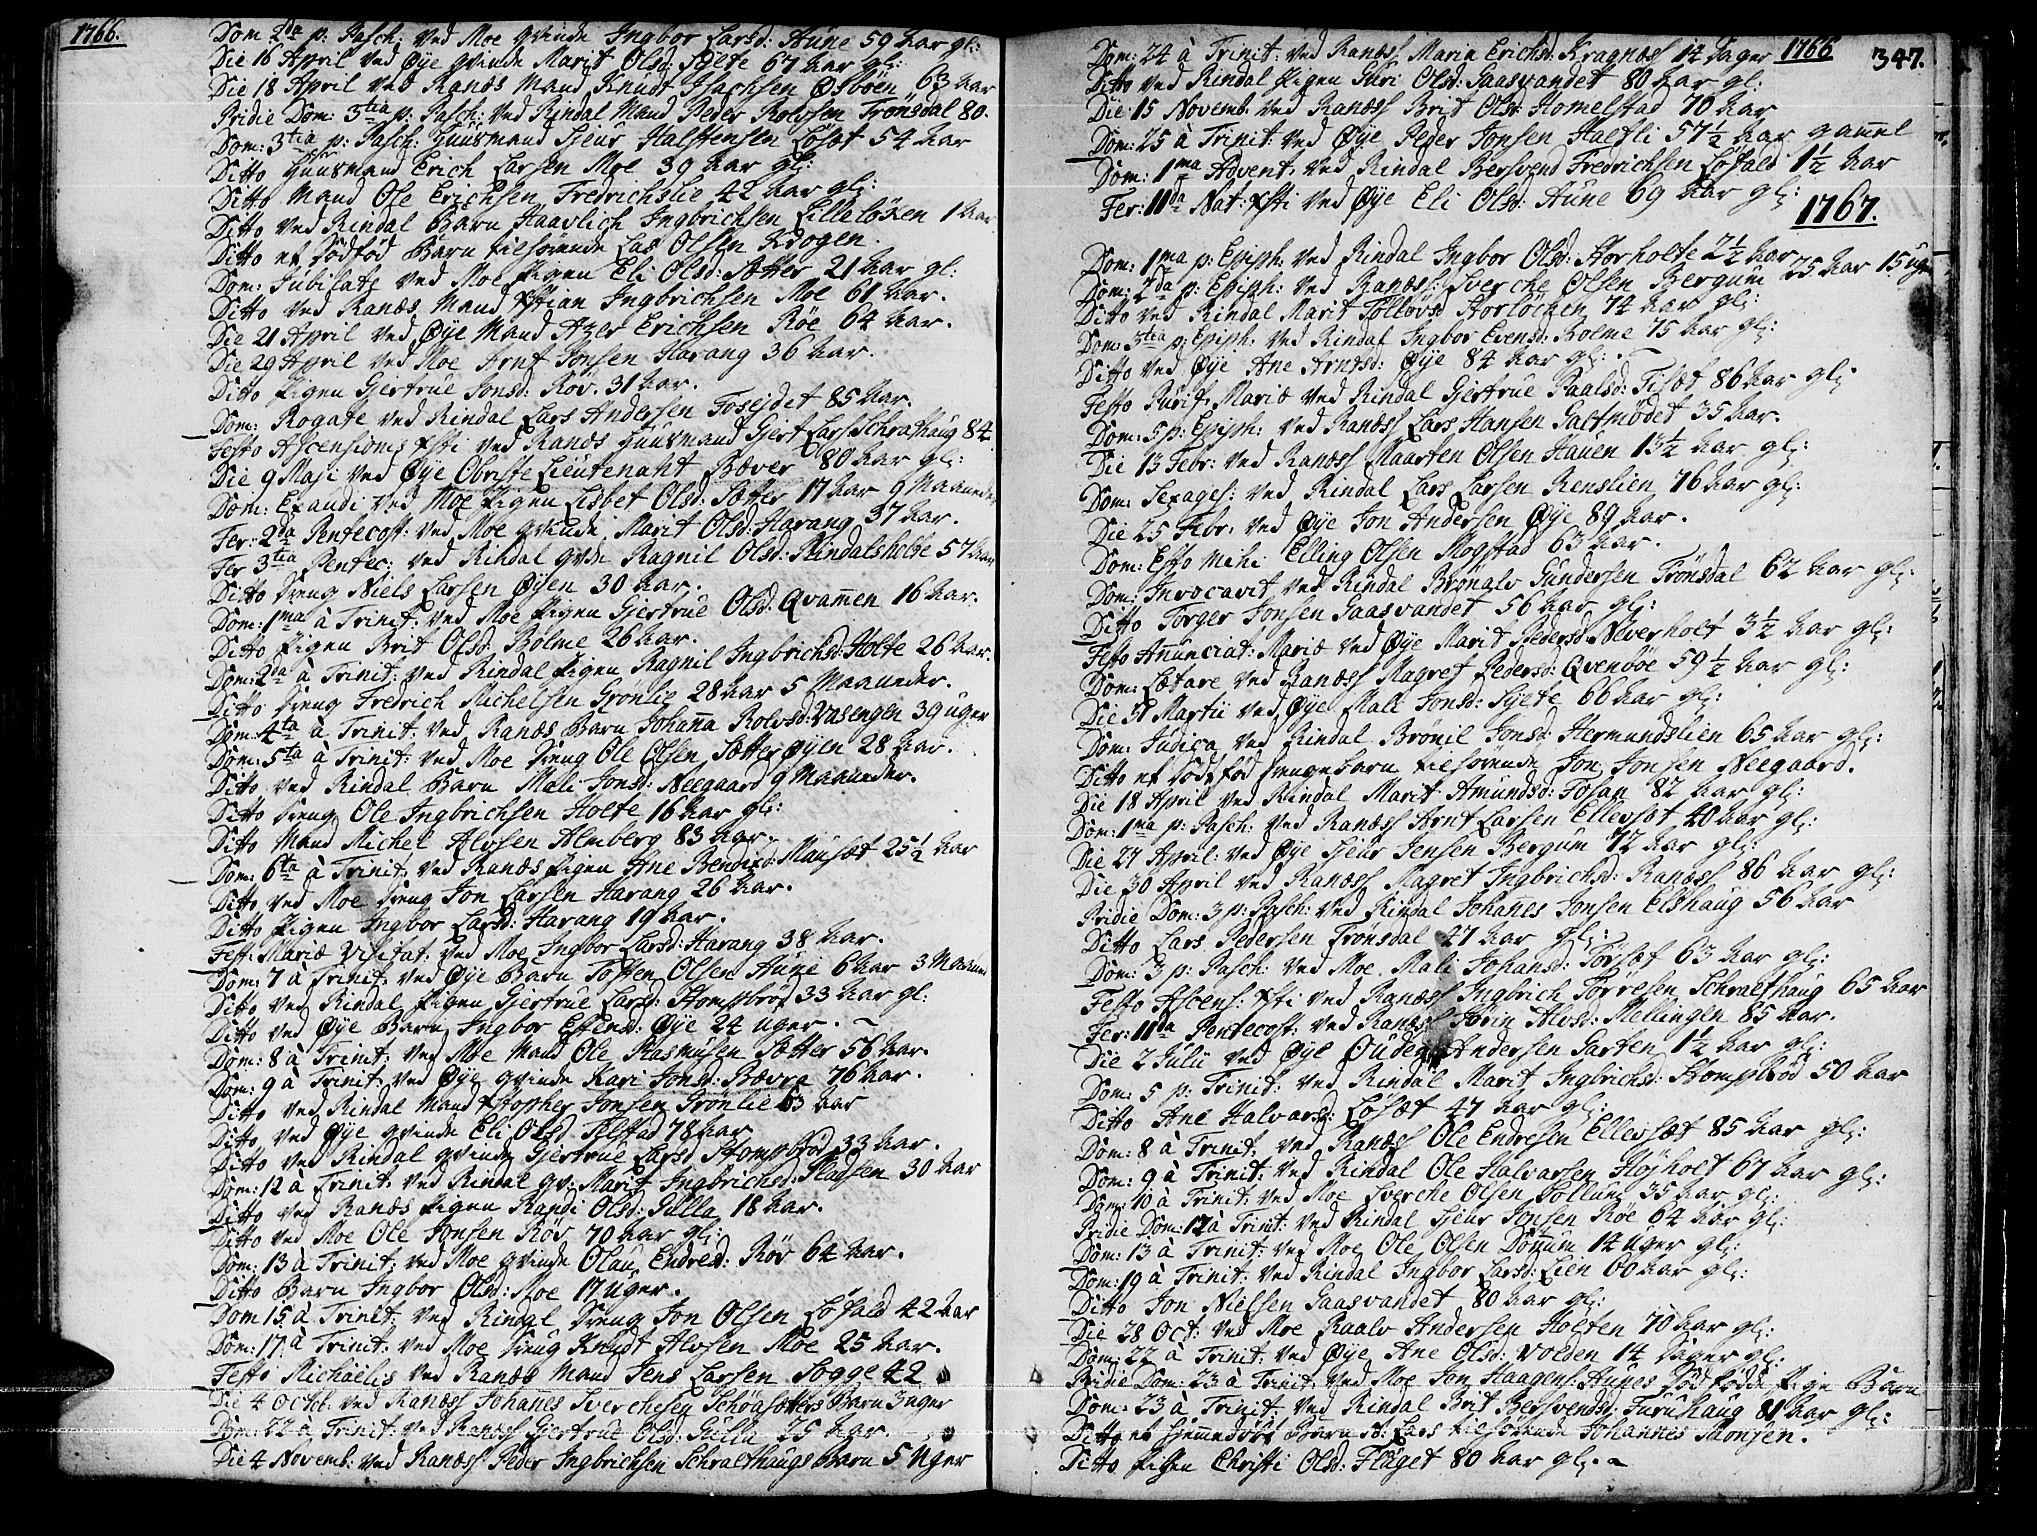 1766.
Dom 2da p: Pasch: ved Moe qvinde Ingbor Larsd: Aune 59 aar gl:
Die 16 April ved Øye qvinde Marit Olsd: Siete 67 aar gl:
Die 18 April ved Ranæs Mand Knudt Isachsen Øsbøen 63 aar
Pridie Dom: 3tia p: Pasch: ved Rindal Mand Peder Rolvsen Trønsdal 80.
Dom: 3tia p: Pasch: Huusmand Siur Halstensen Løset 54 aar
Ditto Huusmand Erich Larsen Moe 39 aar gl:
Ditto Mand Ole Erichsen Fredrichslie 42 aar gl:
Ditto ved Rindal Barn Haavlich Ingbrichsen Lilleløken 1 aar
Ditto et dødfød Barn tilhørende Las Olsen Krogen.
Dom: Jubilate ved Moe Pigen Eli Olsd: Sætter 21 aar gl:
Ditto ved Ranæs Mand Xstian Ingbrichsen Moe 61 aar.
Die 21 April ved Øye Mand Azer Erichsen Røe 64 aar.
Die 29 April ved Moe Arnt Jonsen Harang 36 aar.
Ditto Pigen Gjertrue Jonsd: Røv. 31 aar.
Dom: Rogate ved Rindal Lars Andersen Fosejdet 85 aar.
Festo Ascensionis Xsti ved Ranæs Huusmand Gjert Lars Schrathaug 84.
Die 9 Maji ved Øye Obriste Lieutenant Bæver 80 aar gl:
Dom: Exaudi ved Moe Pigen Lisbet Olsd: Sætter 17 aar 9 Maaneder
Fer: 2da Pentecost: ved Moe qvinde Marit Olsd: Harang 37 aar.
Fer 3tia Pentec: ved Rindal qvde Ragnil Olsd: Rindalsholte 57 aar
Ditto Dreng Niels Larsen Øyen 30 aar.
Dom: 1ma à Trinit: ved Moe Pigen Gjertrue Olsd: Qvam̄en 16 aar.
Ditto Pigen Brit Olsd: Bolme 26 aar.
Dom: 2da à Trinit: ved Rindal Pigen Ragnil Ingbrichsd: Holte 26 aar.
Ditto Dreng Fredrich Michelsen Grønlie 28 aar 5 Maaneder.
Dom: 4ta à Trinit: ved Ranæs Barn Johan̄a Rolvsd: Vasengen 39 uger
Dom: 5ta à Trinit: ved Moe Dreng Ole Olsen Sætterøyen 28 aar.
Ditto ved Rindal Barn Mali Jonsd: Neegaard 9 Maaneder.
Ditto Dreng Ole Ingbrichsen Holte 16 aar gl:
Ditto Mand Michel Alvsen Almberg 83 aar.
Dom: 6ta à Trinit: ved Ranæs Pigen Ane Bendixd: Mausæt 25½ aar
Ditto ved Moe Dreng Jon Larsen Harang 26 aar.
Ditto Pigen Ingbor Larsd: Harang 19 aar.
Fest: Mariæ Visitat: ved Moe Ingbor Larsd: Harang 38 aar.
Dom: 7 à Trinit: ved Øye Barn Tosten Olsen Aune 6 aar 3 Maaned
Ditto ved Rindal Pigen Gjertrue Larsd: Stompbrød 33 aar gl:
Ditto ved Øye Barn Ingbor Estensd: Øye 24 uger.
Dom: 8 à Trinit: ved Moe Mand Ole Rasmusen Sætter 56 aar.
Dom: 9 à Trinit: ved Øye qvinde Kari Jonsd: Bævra 76 aar.
Ditto ved Rindal Mand Xstopher Jonsen Grønlie 63 aar
Ditto ved Øye qvinde Eli Olsd: Telstad 78 aar
Ditto ved Rindal qvinde Gjertrue Larsd Stompbrød 33 aar.
Dom: 12 à Trinit: ved Rindal qv: Marit Ingbrichsd: Pladsen 30 aar
Ditto ved Ranæs Pigen Randi Olsd: Gulla 18 aar.
Ditto ved Moe Ole Jonsen Røv 70 aar gl:
Dom: 13 à Trinit: ved Moe qvinde Olau Endresd: Røv 64 aar.
Ditto Barn Ingbor Olsd: Moe 17 uger.
Dom 15 à Trinit: ved Rindal Dreng Jon Olsen Løfald 42 aar
Dom: 17 à Trinit: ved Moe Dreng Knudt Alvsen Moe 25 aar.
Festo Michaelis ved Ranæs Mand Jens Larsen Sogge 42
Die 4 Octob: ved Ranæss Johan̄es Sverchesen Schøasætters Barn 3 uger
Dom: 22 à Trinit: ved Ranæss Gjertrue Olsd: Gulla 75 aar.
Die 4 Novemb: ved Ranæss Peder Ingbrichsen Schralthaugs Barn 5 Uger
1766
347.
Dom: 24 à Trinit: ved Ranæss Maria Erichsd: Kragnæss 14 Dager
Ditto ved Rindal Pigen Guri Olsd: Saasvandet 80 aar gl:
Die 15 Novemb. ved Ranæss Brit Olsd: Homelstad 70 aar
Dom: 25 à Trinit: ved Øye Peder Jonsen Haltli 57½ aar gam̄el
Dom: 1ma Advent: ved Rindal Bersvend Fredrichsen Løfald 1½ aar
Fer: 11da Nat: Xsti ved Øye Eli Olsd: Aune 69 aar gl:
1767.
Dom: 1ma p: Epiph: ved Rindal Ingbor Olsd: Storholte 7½ aar
Dom: 2da p: Epiph: ved Ranæss: Sverche Olsen Bergum 35 aar 15 uger
Ditto ved Rindal Marit Tollovsd Storløcken 74 aar gl:
Dom: 3tia p: Epiph: ved Rindal Ingbor Evensd: Bolme 75 aar gl:
Ditto ved Øye Ane Arntsd: Øye 84 aar gl:
Festo Purif: Mariæ ved Rindal Gjertrue Paalsd: Tiset 86 aar gl:
Dom: 5 p: Epiph: ved Ranæss Lars Hansen Saltmødet 35 aar.
Die 13 Febr: ved Ranæss Maarten Olsen Hauen 13½ aar gl:
Dom: Sexages: ved Rindal Lars Larsen Renslien 76 aar gl:
Die 25 Febr: ved Øye Jon Andersen Øye 89 aar.
Dom: Esto Mihi Elling Olsen Mogstad 63 aar.
Dom: Invocavit ved Rindal Brønalv Gundersen Trønsdal 62 aar gl:
Ditto Torger Jonsen Saasvandet 56 aar gl:
Festo An̄unciat: Mariæ ved Øye Marit Pedersd: Neverholt 3½ aar gl:
Dom: Lætare ved Ranæss Magret Pedersd: Qvenbøe 59½ aar gl:
Die 31 Martii ved Øye Mali Jonsd: Siete 66 aar gl:
Dom: Judica ved Rindal Brønil Jonsd: Hermundslien 65 aar gl:
Ditto et dødfød Drengebarn tilhørende Jon Jonsen Neegaard.
Die 18 April ved Rindal Marit Amundsd: Fosan 82 aar gl:
Dom: 1ma p: Pasch: ved Ranæss Arnt Larsen Ellevset 40 aar gl:
Die 27 April: ved Øye Siur Jensen Bergum 72 aar gl:
Die 30 April ved Ranæss Magret Ingbrichsd: Ranæss 86 aar gl:
Pridie Dom: 3 p: Pasch: ved Rindal Johan̄es Jonsen Elshaug 56 aar
Ditto Lars Pedersen Trønsdal 27 aar gl:
Dom: 3 p: Pasch: ved Moe Mali Johansd: Tørset 63 aar gl:
Festo Ascens: Xsti ved Ranæss Ingbrich Torresen Schralthaug 65 aar
Fer: 11da Pentecost: ved Ranæss Sørin Alvsd: Mellingen 85 aar.
Die 2 Julii ved Øye Ouden Andersen Garten 1½ aar gl:
Dom: 5 p: Trinit: ved Rindal Marit Ingbrichsd: Stompbrød 50 aar
Ditto Ane Halvarsd: Løset 47 aar gl:
Dom: 8 à Trinit: ved Ranæss Ole Endresen Ellevsæt 85 aar gl:
Dom: 9 à Trinit: ved Rindal Ole Halvarsen Højholt 67 aar gl:
Dom: 10 à Trinit: ved Moe Sverche Olsen Sollum 35 aar gl:
Pridie Dom: 12 à Trinit: ved Rindal Siur Jonsen Røe 64 aar gl:
Dom: 13 à Trinit: ved Moe Ole Olsen Dønum 14 uger gl:
Dom: 19 à Trinit: ved Rindal Ingbor Larsd: Lien 60 aar gl:
Ditto Jon Nielsen Saasvandet 80 aar gl:
Die 28 Oct: ved Moe Raalv Andersen Holten 70 aar gl:
Dom: 22 à Trinit: ved Øye Ane Olsd: Volden 14 Dager gl:
Pridie Dom: 23 à Trinit: ved Moe Jon Haagens: Aunes dødfødde Pige Barn
Dom: 23 à Trinit: ved Rindal Brit Bersvendsd: Furuhaug 81 aar gl:
Ditto et hjemedøbt Barn n: Lars tilhørende Johannes Monsen.
Ditto Pigen Christi Olsd: Flaget 80 aar gl: